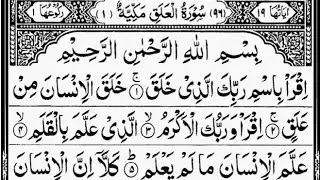 اٰیَاتُهَا ١٩ (٩٦) سُوْرَةُ الْعَلَقِ مَكِّیَّةٌ (١) رُكُوْعُهَا
بِسْمِ اللّٰهِ الرَّحْمٰنِ الرَّحِیْمِ
اِقْرَاْ بِاسْمِ رَبِّكَ الَّذِیْ خَلَقَ ۚ﴿١﴾ خَلَقَ الْاِنْسَانَ مِنْ
عَلَقٍ ۚ﴿٢﴾ اِقْرَاْ وَ رَبُّكَ الْاَكْرَمُ ۙ﴿٣﴾ الَّذِیْ عَلَّمَ بِالْقَلَمِ ۙ﴿٤﴾
عَلَّمَ الْاِنْسَانَ مَا لَمْ یَعْلَمْ ؕ﴿٥﴾ كَلَّاۤ اِنَّ الْاِنْسَانَ